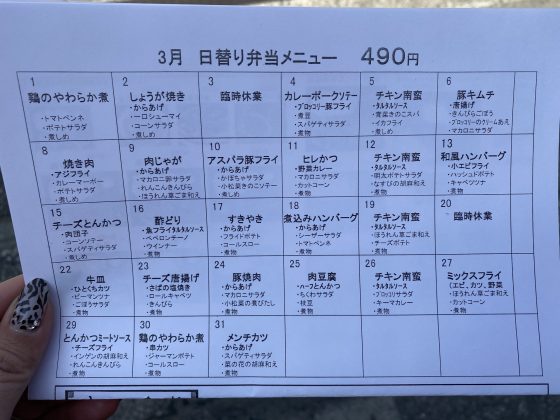 3月 日替り弁当メニュー 490円
1
鶏のやわらか煮
・トマトペンネ
・ポテトサラダ
・煮しめ
2
しょうが焼き
・からあげ
・一口シューマイ
・コーンサラダ
・煮しめ
3
臨時休業
4
カレーポークソテー
・ブロッコリー豚フライ
・煮豆
・スパゲティサラダ
・煮物
5
チキン南蛮
・タルタルソース
・青菜きのこスパ
・イカフライ
・煮しめ
6
豚キムチ
・唐揚げ
・きんぴらごぼう
・ブロッコリーのクリームあえ
・マカロニサラダ
8
焼き肉
・アジフライ
・カレーマーボー
・ポテトサラダ
・煮しめ
9
肉じゃが
・からあげ
・マカロニ卵サラダ
・れんこんきんぴら
・ほうれん草ごま和え
10
アスパラ豚フライ
・からあげ
・かぼちゃサラダ
・小松菜きのこソテー
・煮しめ
11
ヒレかつ
・野菜カレー
・マカロニサラダ
・カットコーン
・煮物
12
チキン南蛮
・タルタルソース
・明太ポテトサラダ
・なすびの胡麻和え
・煮物
13
和風ハンバーグ
・小エビフライ
・ハッシュドポテト
・キャベツソテー
・煮物
15
チーズとんかつ
・肉団子
・コーンソテー
・スパゲティサラダ
・煮物
16
酢どり
・魚フライタルタルソース
・ペペロンチーノ
・ウインナー
・煮物
17
すきやき
・からあげ
・フライドポテト
・コールスロー
・煮物
18
煮込みハンバーグ
・からあげ
・シーザーサラダ
・トマトペンネ
・煮物
19
チキン南蛮
・タルタルソース
・ほうれん草ごま和え
・チーズポテト
・煮物
20
臨時休業
22
牛皿
・ひとくちカツ
・ピーマンツナ
・ごぼうサラダ
・煮物
23
チーズ唐揚げ
・さばの塩焼き
・ロールキャベツ
・きんぴら
・煮物
24
豚焼肉
・からあげ
・マカロニサラダ
・小松菜の煮びたし
・煮物
25
肉豆腐
・ハーフとんかつ
・ちくわサラダ
・枝豆
・煮物
26
チキン南蛮
・タルタルソース
・ブロッコリサラダ
・キーマカレー
・煮物
27
ミックスフライ
(エビ、カツ、野菜
・ほうれん草ごま和え
・カットコーン
・煮物
29
とんかつミートソース
・チーズフライ
・インゲンの胡麻和え
・れんこんきんぴら
・煮物
30
鶏のやわらか煮
・串カツ
・ジャーマンポテト
・コールスロー
・煮物
31
メンチカツ
・からあげ
・スパゲティサラダ
・菜の花の胡麻和え
・煮物